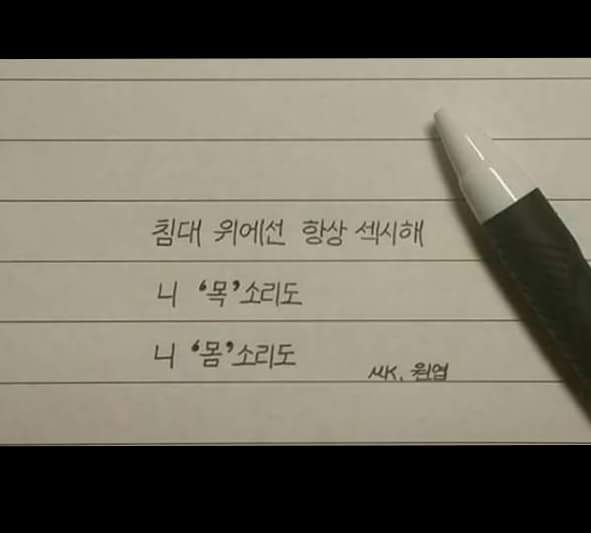 침대 위에선 항상 섹시해
니 ‘목’소리도
니 ‘몸’소리도
MK. 원엽